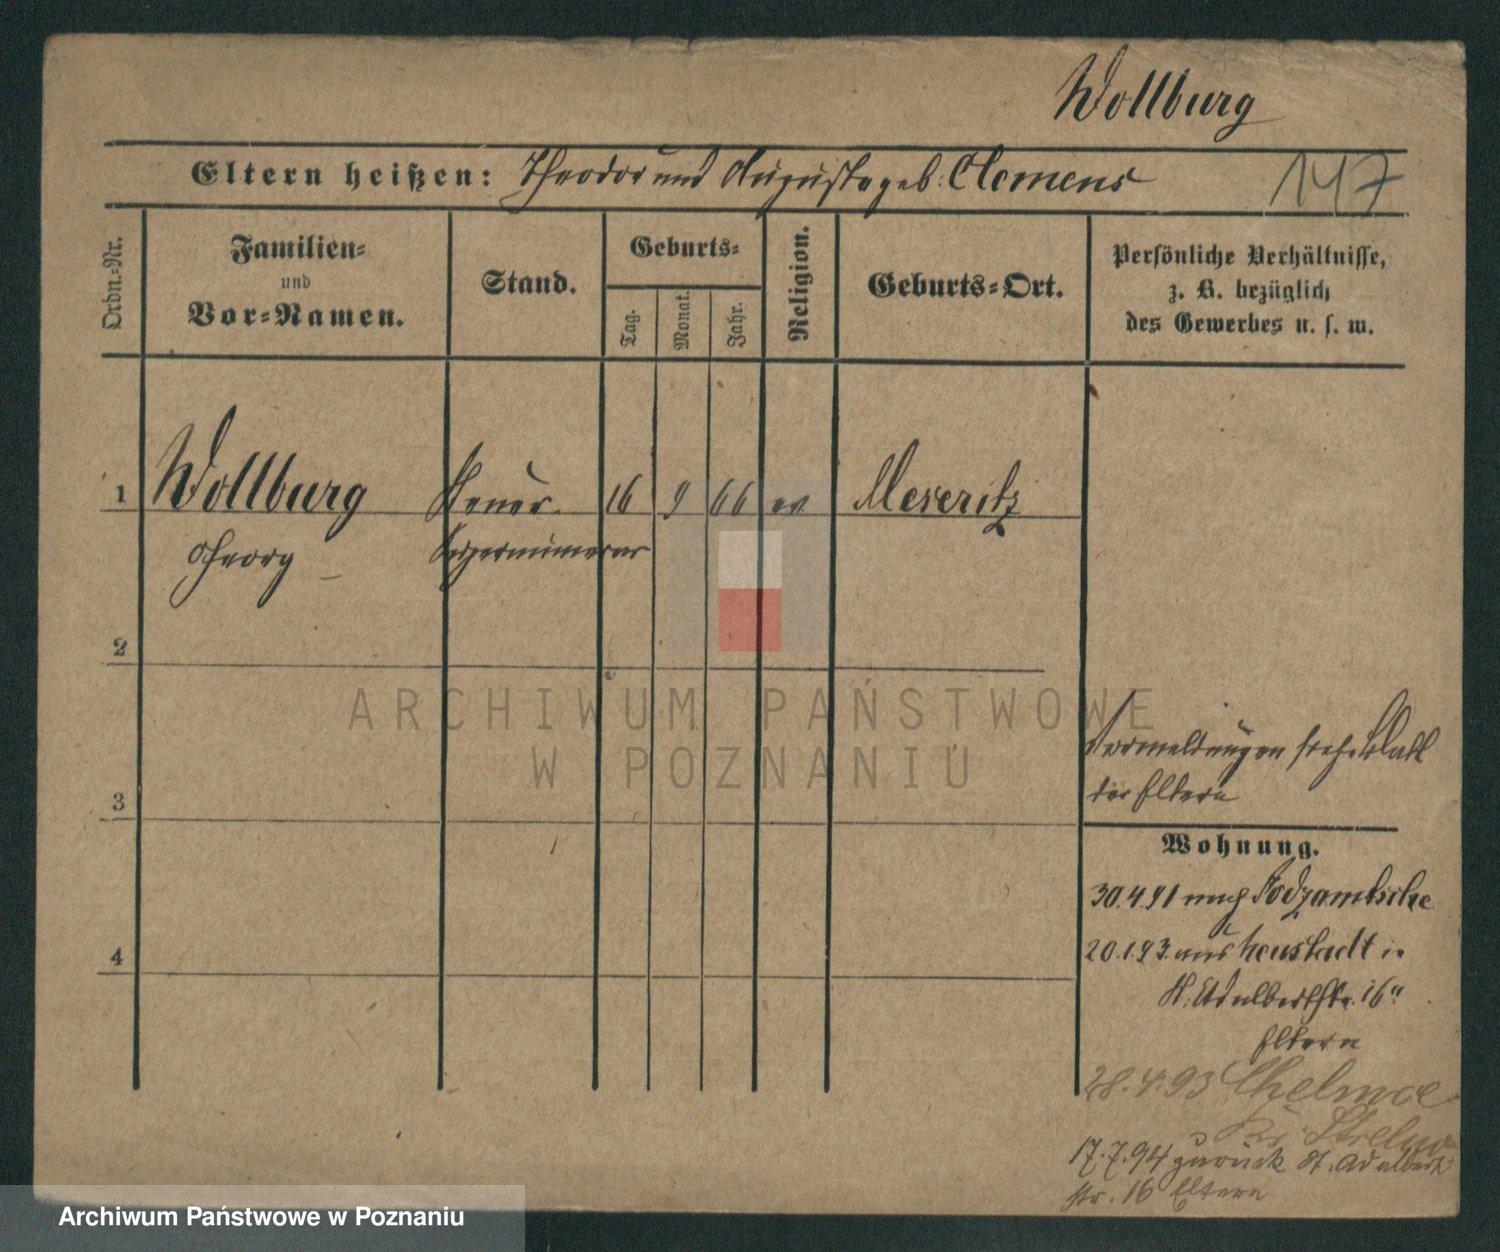 Wollburg
Eltern heißen: Theodor und Auguste geb. Clemens
147
Ordn.=Nr.
Familien=
und
Vor=Namen.
Stand.
Geburts=
Tag.
Monat.
Jahr.
Religion.
Geburts=Ort.
Persönliche Verhältnisse,
z. B. bezüglich
des Gewerbes u. s. w.
1 Wollburg Steuer 16 9 66 ev Meseritz
Georg Supernumerar
2
3
4
Vermeldungen siehe Blatt
der Eltern
Wohnung.
30.4.91 nach Podzamtsche
20.1.93 aus Neustadt
St. Adalbertstr. 16
Eltern
28.4.93 Chelmce
Kr. Strelno
17.7.94 zurück St. Adalbert
str. 16 Eltern
ARCHIWUM PAŃSTWOWE
W POZNANIU
Archiwum Państwowe w Poznaniu